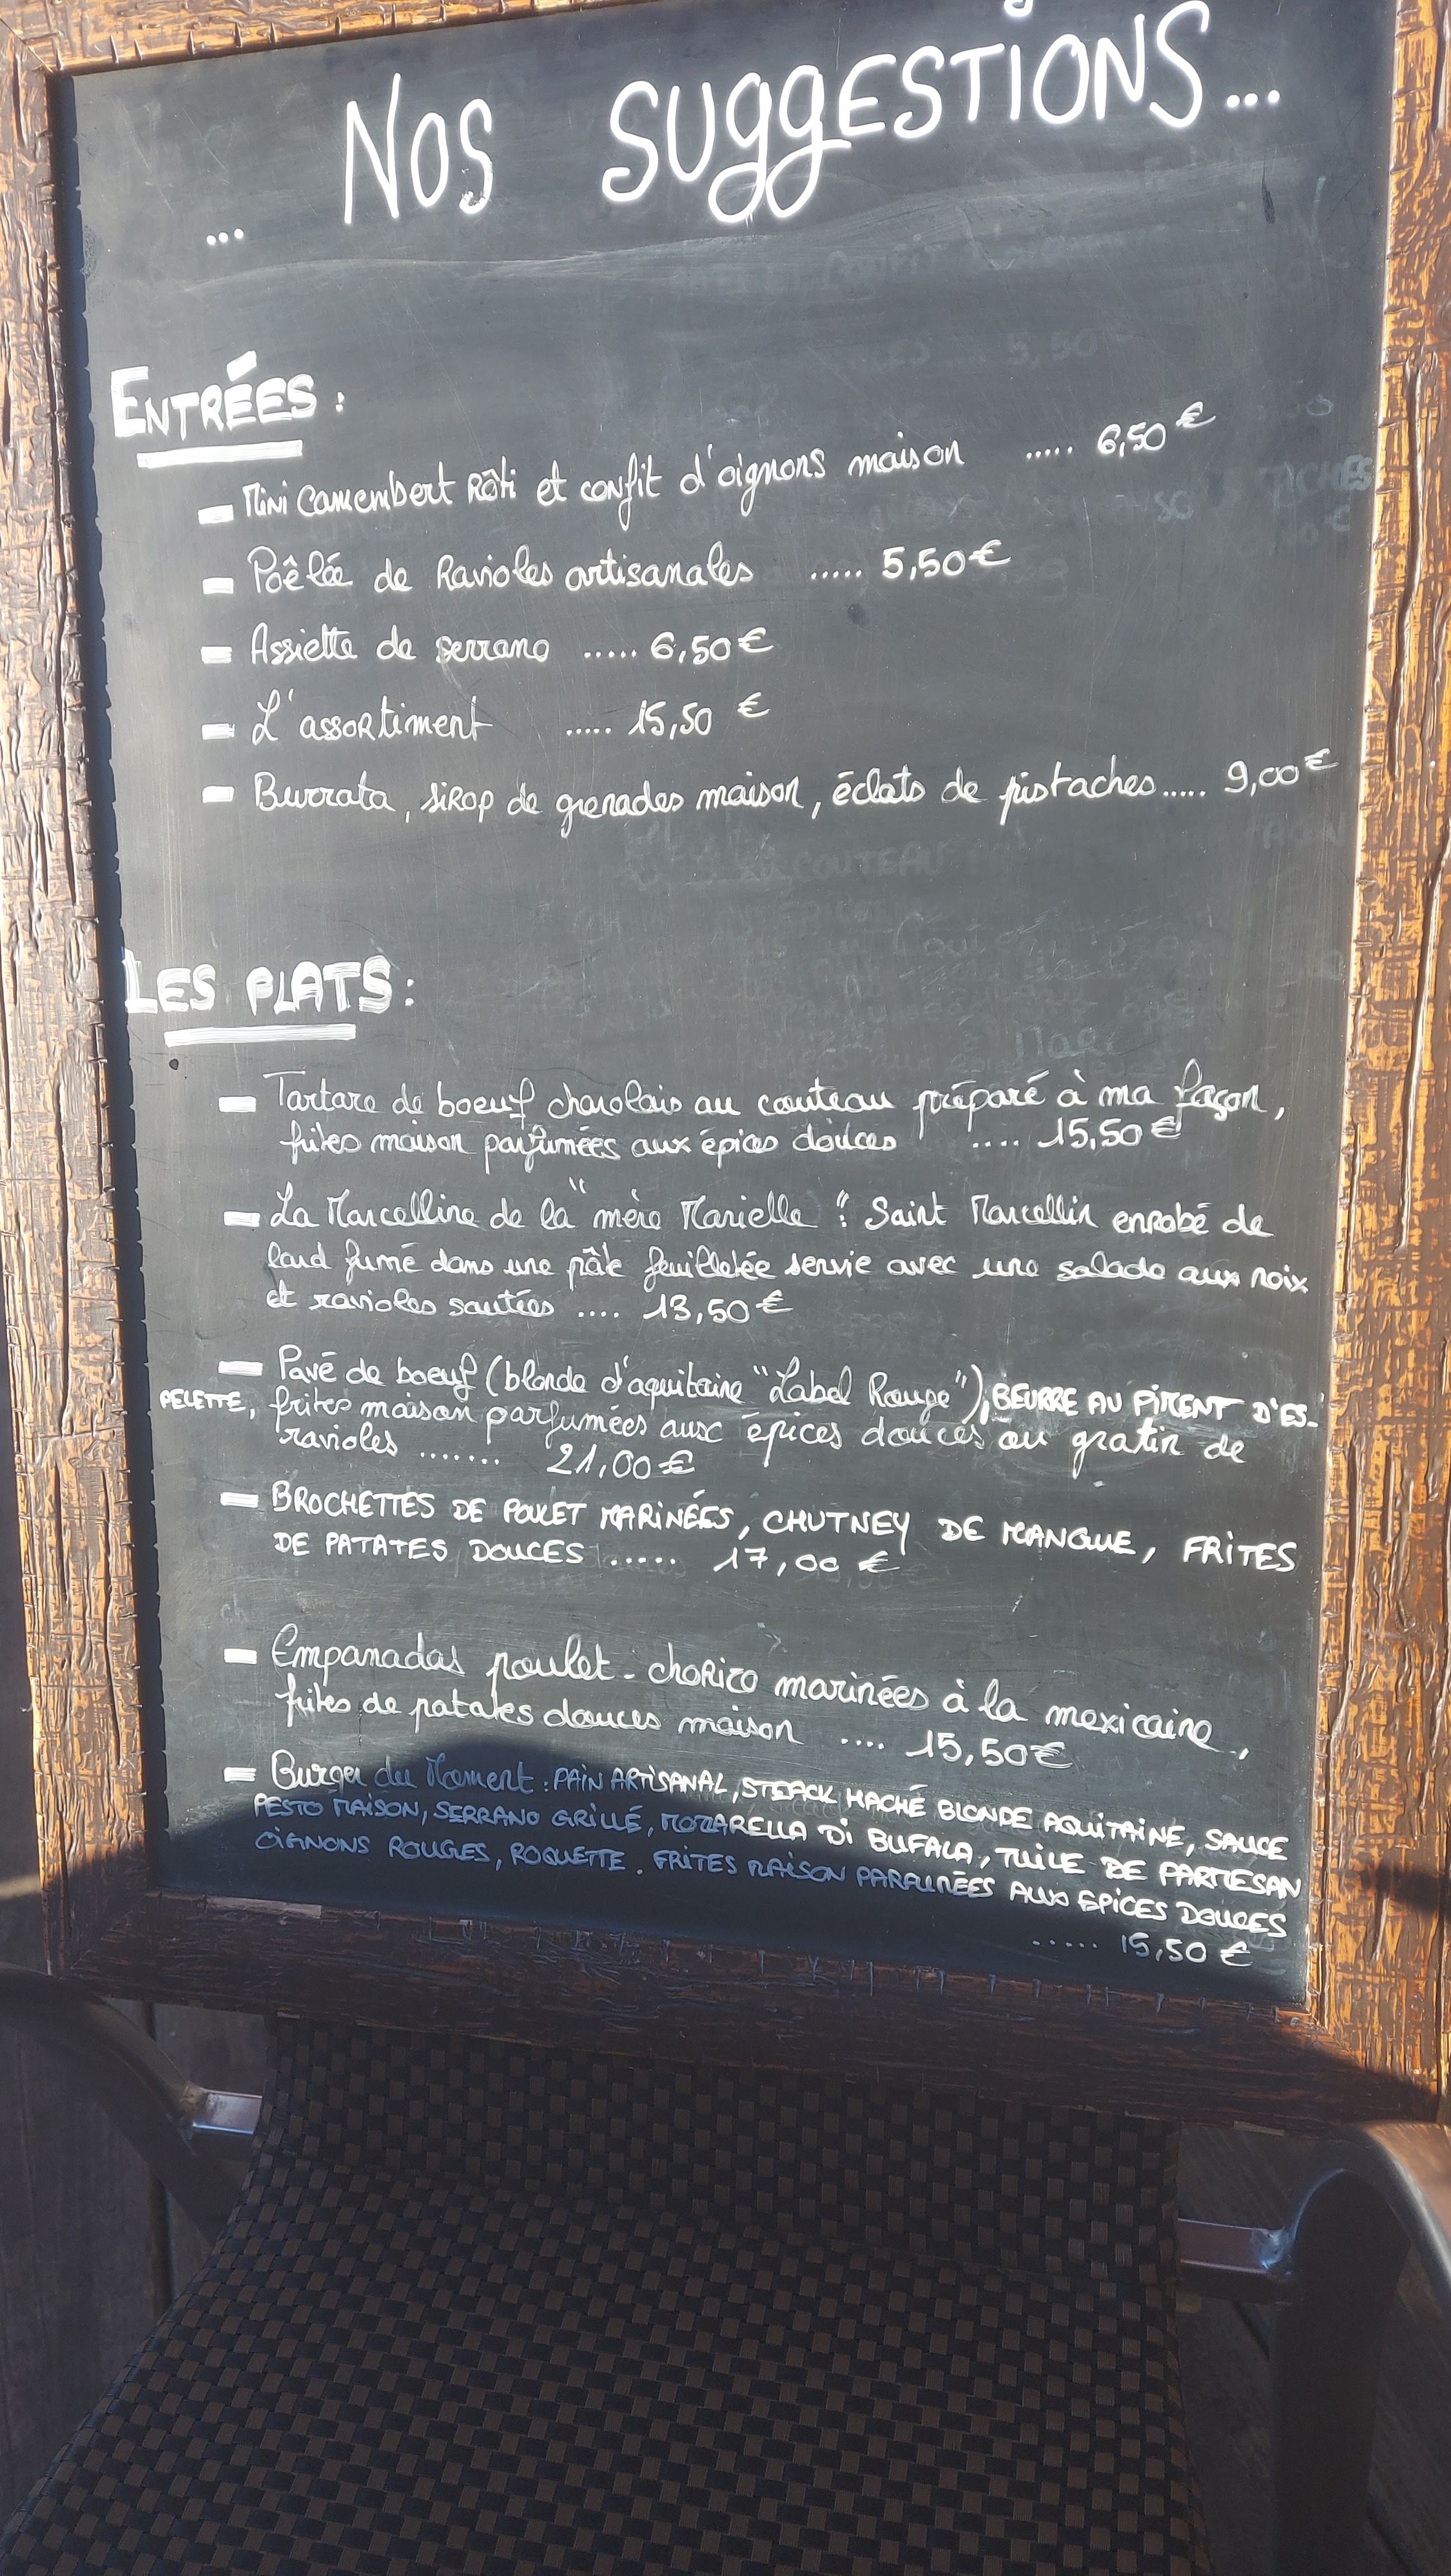 ... NOS SUGGESTIONS...
ENTRÉES :
- Mini Camembert Rôti et confit d'oignons maison ..... 6,50 €
- Poêlée de Ravioles artisanales ..... 5,50 €
- Assiette de serrano ..... 6,50 €
- L'assortiment ..... 15,50 €
- Burrata, sirop de grenades maison, éclats de pistaches ..... 9,00 €
LES PLATS :
- Tartare de boeuf charolais au couteau préparé à ma façon,
frites maison parfumées aux épices douces .... 15,50 €
- La Marcelline de la "mère Marielle" : Saint Marcellin enrobé de
lard fumé dans une pâte feuilletée servie avec une salade aux noix
et ravioles sautées .... 13,50 €
- Pavé de boeuf (blonde d'aquitaine "Label Rouge"), BEURRE AU PIMENT D'ES-
PELETTE, frites maison parfumées aux épices douces ou gratin de
ravioles ....... 21,00 €
- BROCHETTES DE POULET MARINÉES, CHUTNEY DE MANGUE, FRITES
DE PATATES DOUCES ..... 17,00 €
- Empanadas poulet - chorizo marinées à la mexicaine,
frites de patates douces maison .... 15,50 €
- Burger du Moment : PAIN ARTISANAL, STEACK HACHÉ BLONDE AQUITAINE, SAUCE
PESTO MAISON, SERRANO GRILLÉ, MOZARELLA DI BUFALA, TUILE DE PARMESAN
OIGNONS ROUGES, ROQUETTE. FRITES MAISON PARFUMÉES AUX EPICES DOUCES
..... 15,50 €